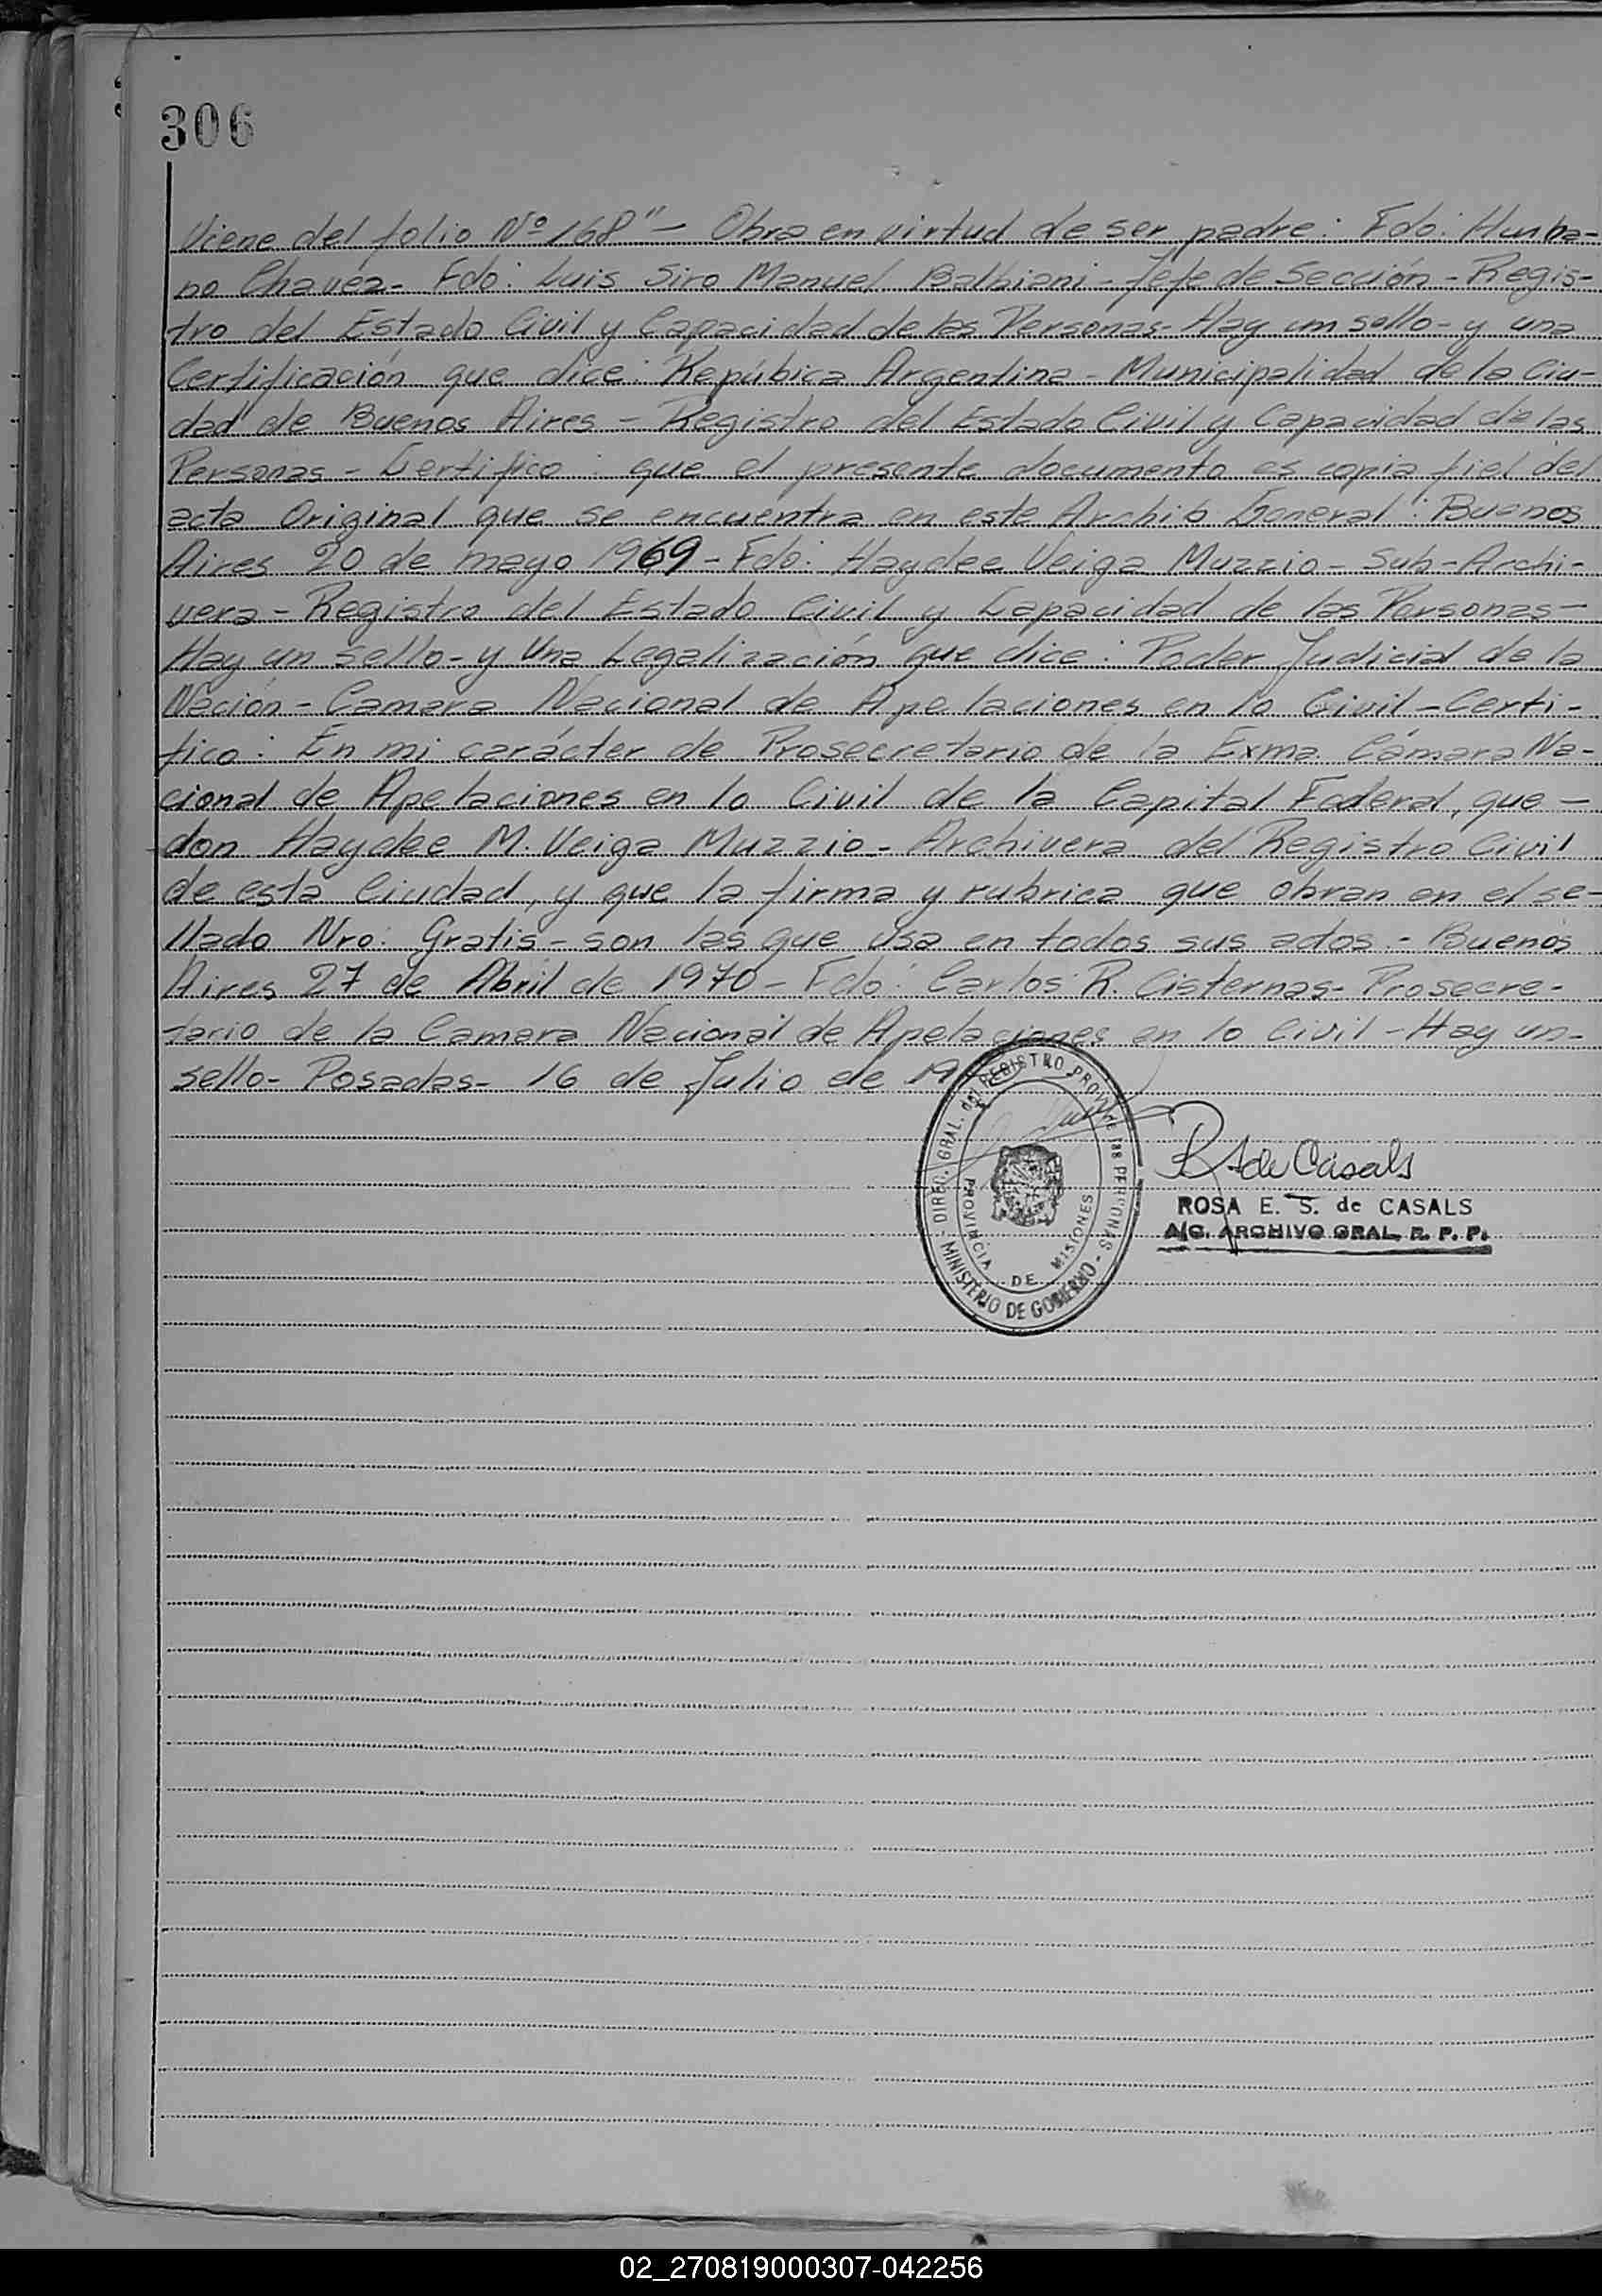 306
Viene del folio Nº 168" - Obra en virtud de ser padre: Fdo: Hurba-
no Chavéz - Fdo: Luis Siro Manuel Balbiani - Jefe de Sección - Regis-
tro del Estado Civil y Capacidad de las Personas - Hay un sello - y una
Certificación que dice: Repúbica Argentina - Municipalidad de la Ciu-
dad de Buenos Aires - Registro del Estado Civil y Capacidad de las
Personas - Certifico: que el presente documento es copia fiel del
acta Original que se encuentra en este Archib General: Buenos
Aires 20 de mayo 1969 - Fdo: Haydee Veiga Muzzio - Sub-Archi-
vera - Registro del Estado Civil y Capacidad de las Personas -
Hay un sello - y Una Legalización que dice: Poder Judicial de la
Nación - Camara Nacional de Apelaciones en lo Civil - Certi-
fico: En mi carácter de Prosecretario de la Exma. Cámara Na-
cional de Apelaciones en lo Civil de la Capital Federal, que -
don Haydee M. Veiga Muzzio - Archivera del Registro Civil
de esta Ciudad, y que la firma y rubrica que obran en el se-
llado Nro: Gratis - son las que usa en todos sus actos. - Buenos
Aires 27 de Abril de 1970 - Fdo: Carlos R. Cisternas - Prosecre-
tario de la Camara Nacional de Apelaciones en lo Civil - Hay un -
sello - Posadas - 16 de Julio de 19
DIREC. GRAL. del REGISTRO PROV. de las PERSONAS - MINISTERIO DE GOBIERNO -
PROVINCIA DE MISIONES
R S de Casals
ROSA E. S. de CASALS
A/C. ARCHIVO GRAL. R. P. P.
02_270819000307-042256